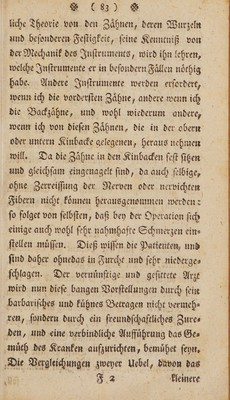 ( 83 )
liche Theorie von den Zähnen, deren Wurzeln
und besonderen Festigkeit, seine Kenntniß von
der Mechanik des Instruments, wird ihn lehren,
welche Instrumente er in besondern Fällen nöthig
habe. Andere Instrumente werden erfordert,
wenn ich die vordersten Zähne, andere wenn ich
die Backzähne, und wohl wiederum andere,
wenn ich von diesen Zähnen, die in der obern
oder untern Kinbacke gelegenen, heraus nehmen
will. Da die Zähne in den Kinbacken fest sitzen
und gleichsam eingenagelt sind, da auch selbige,
ohne Zerreissung der Nerven oder nervichten
Fibern nicht können herausgenommen werden:
so folget von selbsten, daß bey der Operation sich
einige auch wohl sehr nahmhafte Schmerzen ein-
stellen müssen. Dieß wissen die Patienten, und
sind daher ohnedas in Furcht und sehr niederge-
schlagen. Der vernünftige und gesittete Arzt
wird nun diese bangen Vorstellungen durch sein
barbarisches und kühnes Betragen nicht vermeh-
ren, sondern durch ein freundschaftliches Zure-
den, und eine verbindliche Aufführung das Ge-
müth des Kranken aufzurichten, bemühet seyn.
Die Vergleichungen zweyer Uebel, davon das
F 2 kleinere